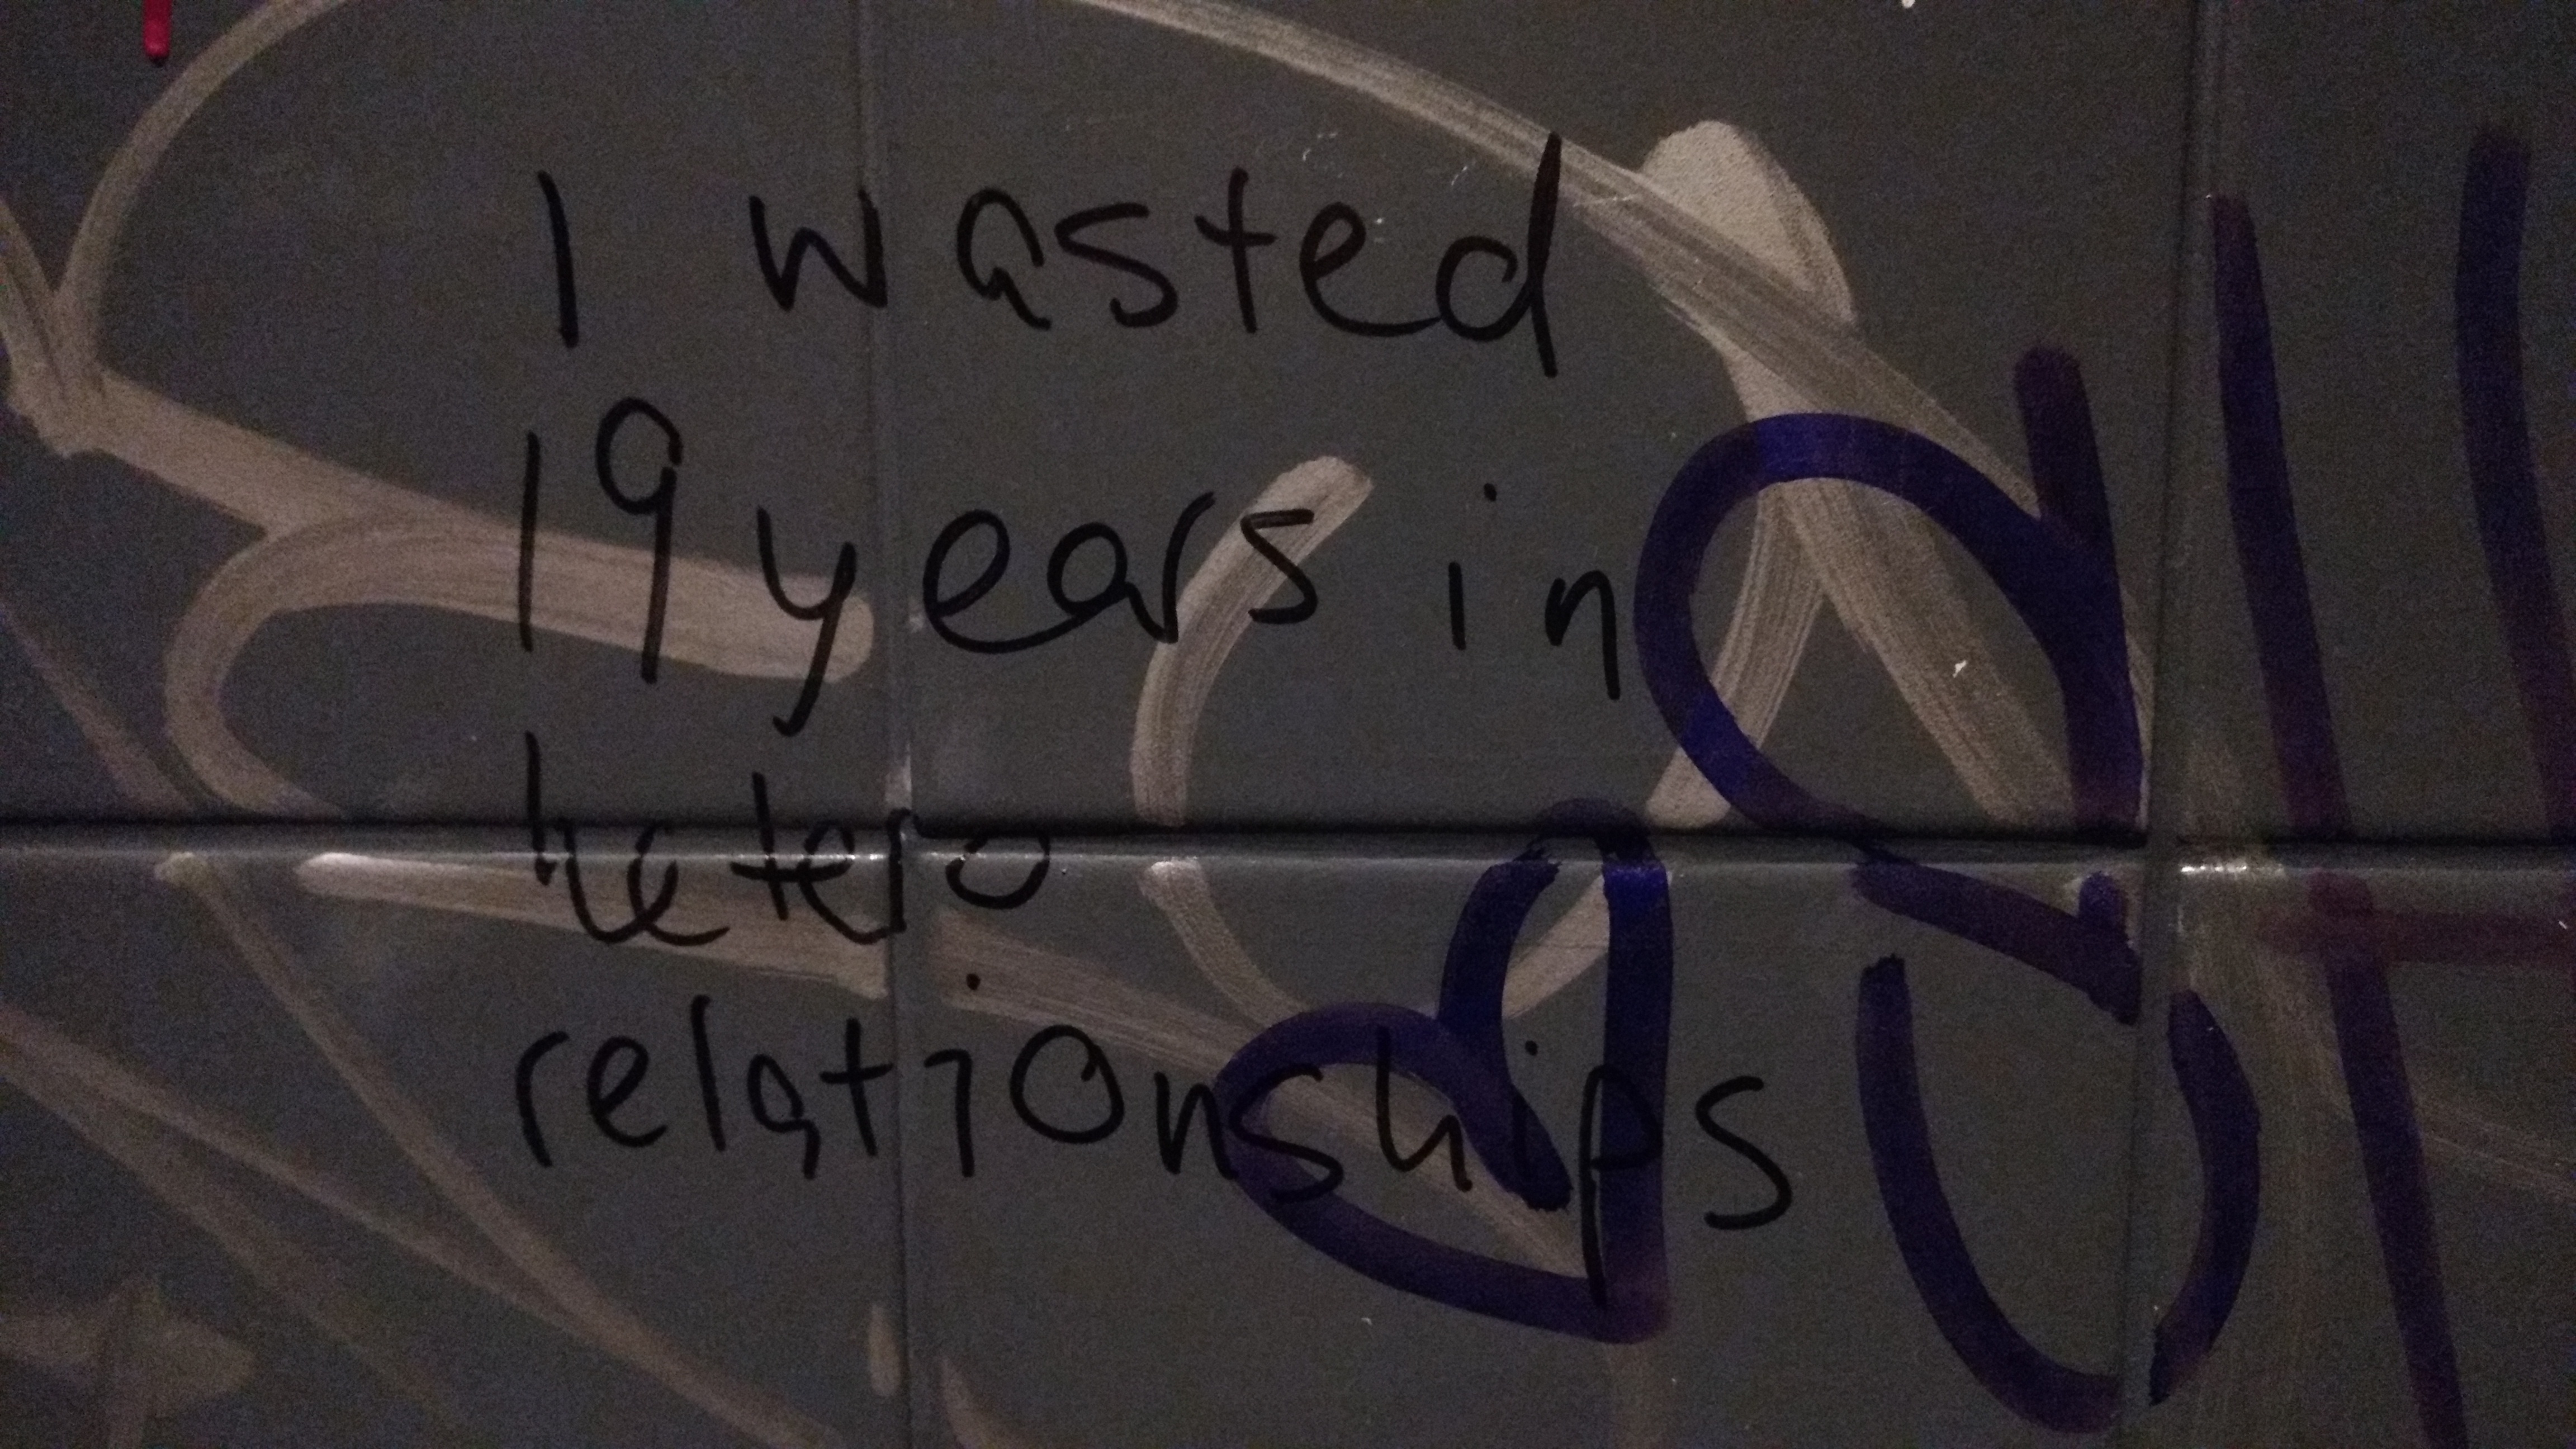 I wasted
19 years in
hetero
relationships
all